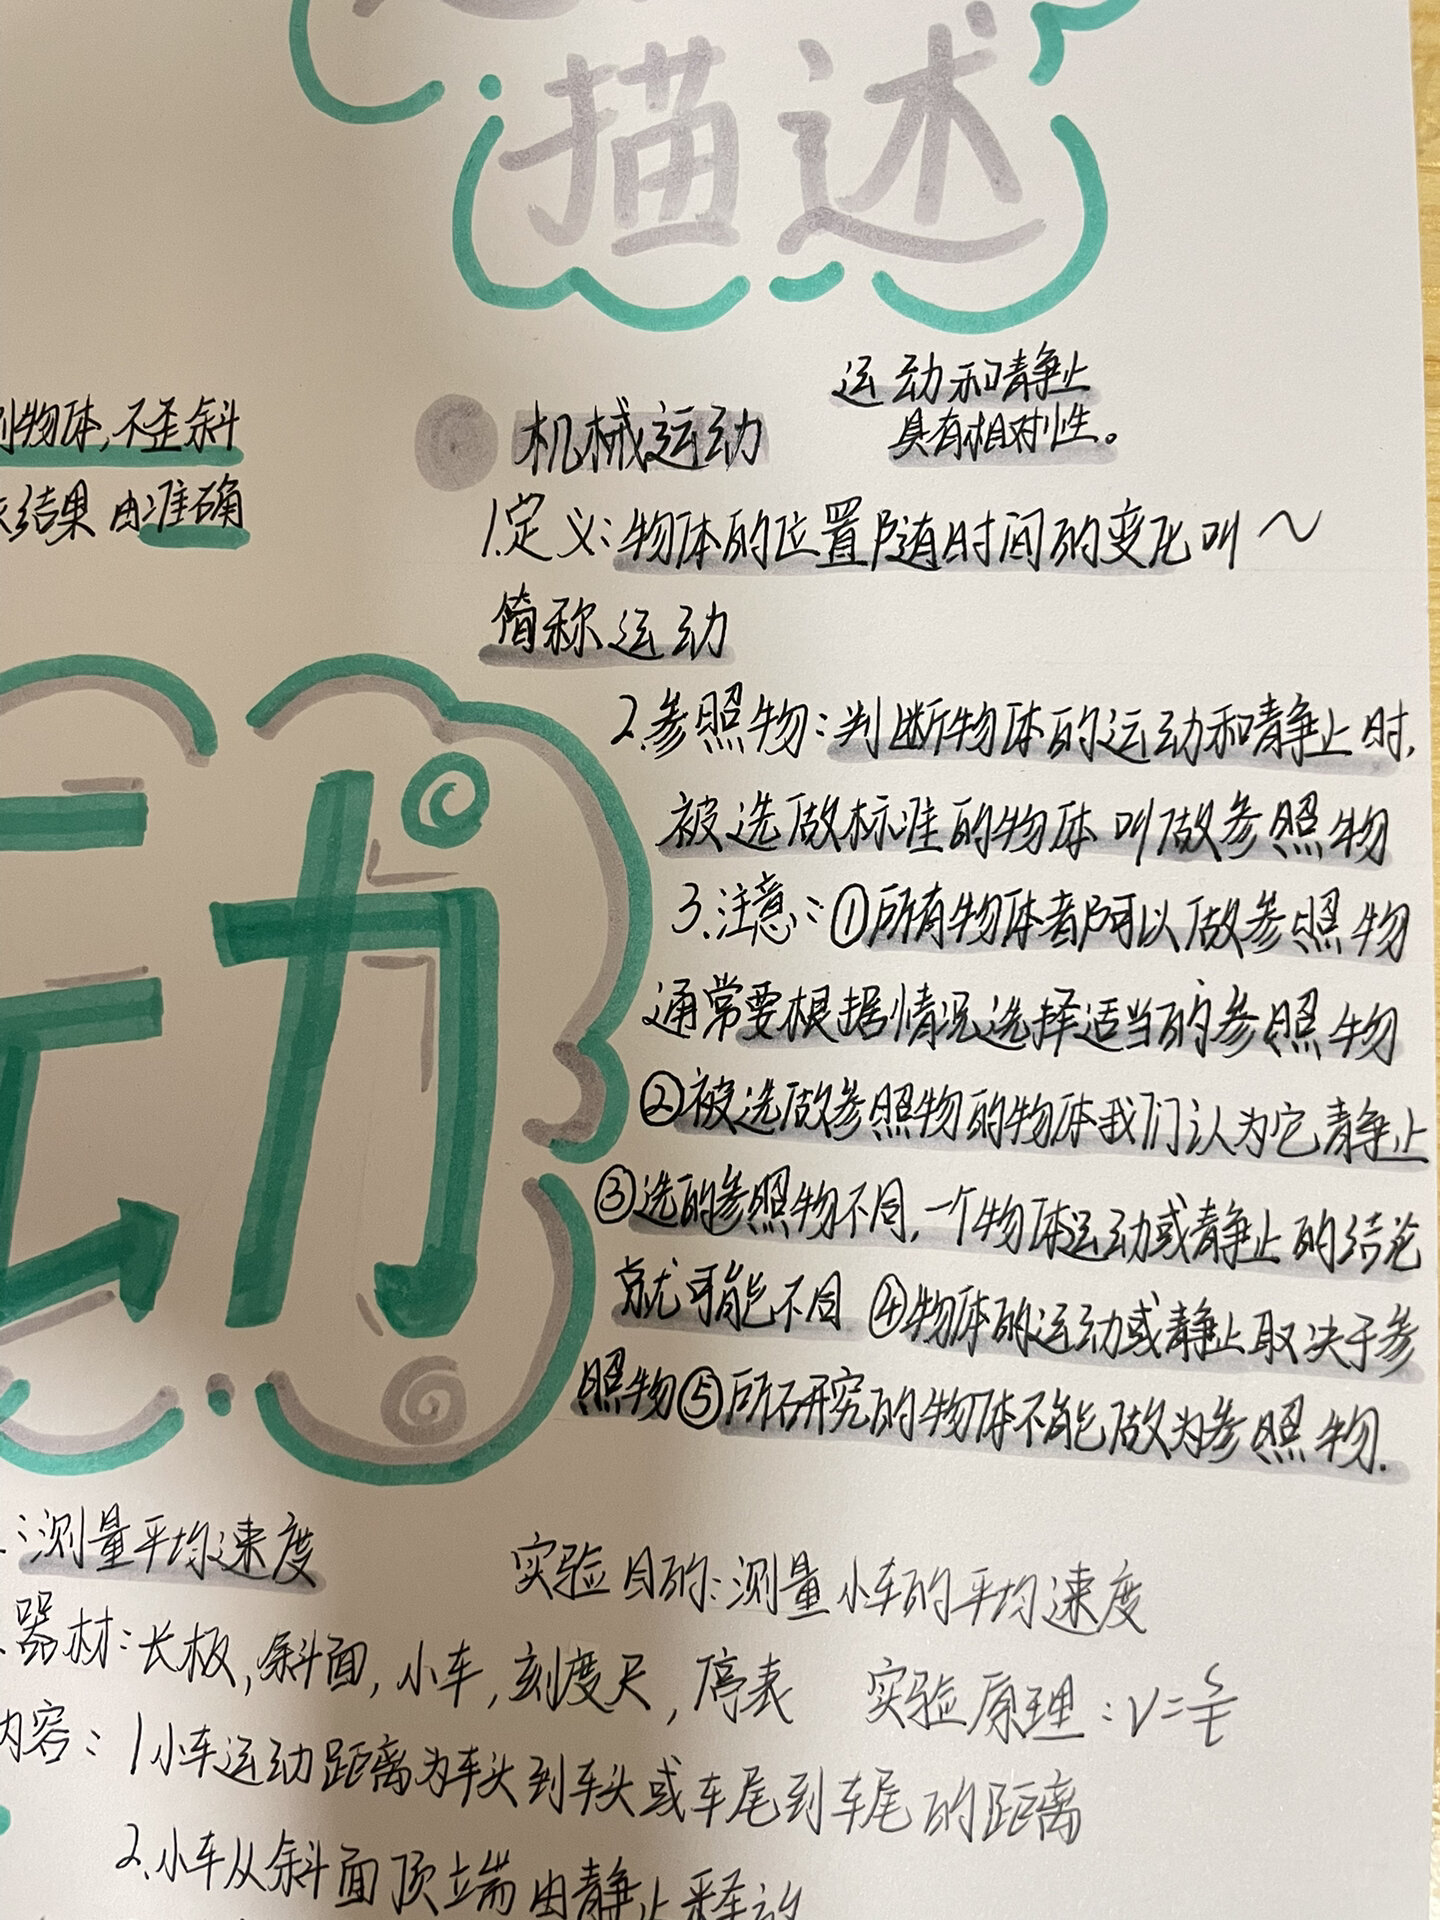 描述
运动和静止
具有相对性。
机械运动
物体,不歪斜
结果由准确
1.定义:物体的位置随时间的变化叫～
简称运动
2.参照物:判断物体的运动和静止时,
被选做标准的物体叫做参照物
3.注意:①所有物体都可以做参照物
通常要根据情况选择适当的参照物
②被选做参照物的物体我们认为它静止
③选的参照物不同,一个物体运动或静止的结论
就可能不同 ④物体的运动或静止取决于参
照物⑤所研究的物体不能做为参照物.
动
:测量平均速度
实验目的:测量小车的平均速度
器材:长板,斜面,小车,刻度尺,停表 实验原理:V=s/t
内容:1小车运动距离为车头到车头或车尾到车尾的距离
2.小车从斜面顶端由静止释放